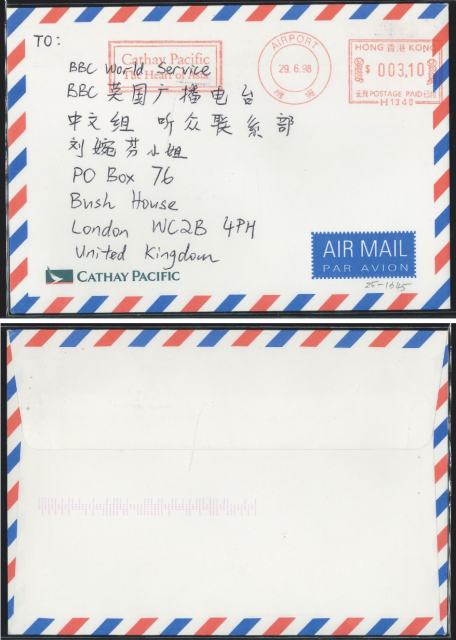 TO:
Cathay Pacific
The Heart of Asia
AIRPORT
29.6.98
HONG 香港 KONG
$ 003.10
POSTAGE PAID
H1340
BBC World Service
BBC 英国广播电台
中文组 听众联系部
刘婉芬小姐
PO Box 76
Bush House
London WC2B 4PH
United Kingdom
AIR MAIL
PAR AVION
CATHAY PACIFIC
25-1645